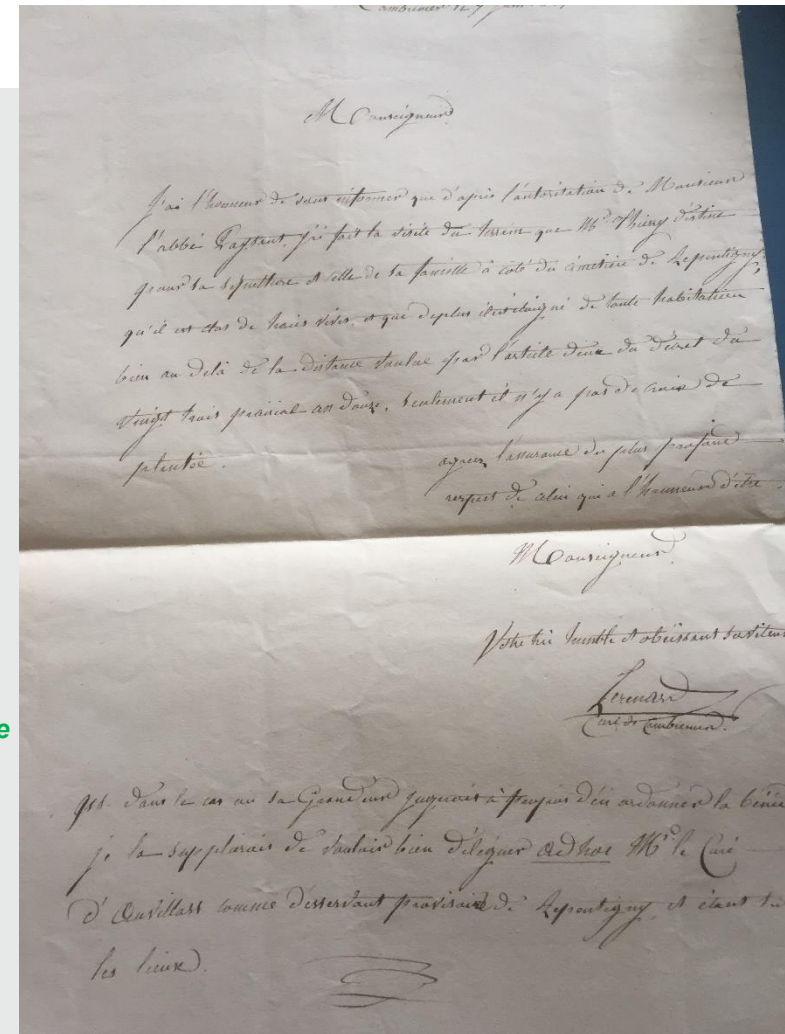 Cambremer le 9 juin
Monseigneur
J'ai l'honneur de vous informer que d'après l'autorisation de Monsieur
l'abbé j'ai fait la visite du terrein que Mr Thierry destine
pour sa sépulture et celle de sa famille à coté du cimetière de Repentigny,
qu'il est clos de haies vives, et que de plus il est éloigné de toute habitation
bien au delà de la distance voulue par l'article deux du décret du
vingt trois prairial an douze, seulement il n'y a pas de croix de
plantée.
agréez l'assurance du plus profond
respect de celui qui a l'honneur d'être
Monseigneur
Votre très humble et obéissant serviteur
Curé de Cambremer.
e
dans le cas ou sa Grandeur jugerait à propos d'en ordonner la
je la supplierais de vouloir bien déléguer ad hoc Mr le Curé
d'Auvillars comme desservant provisoire de Repentigny, et étant
les lieux.